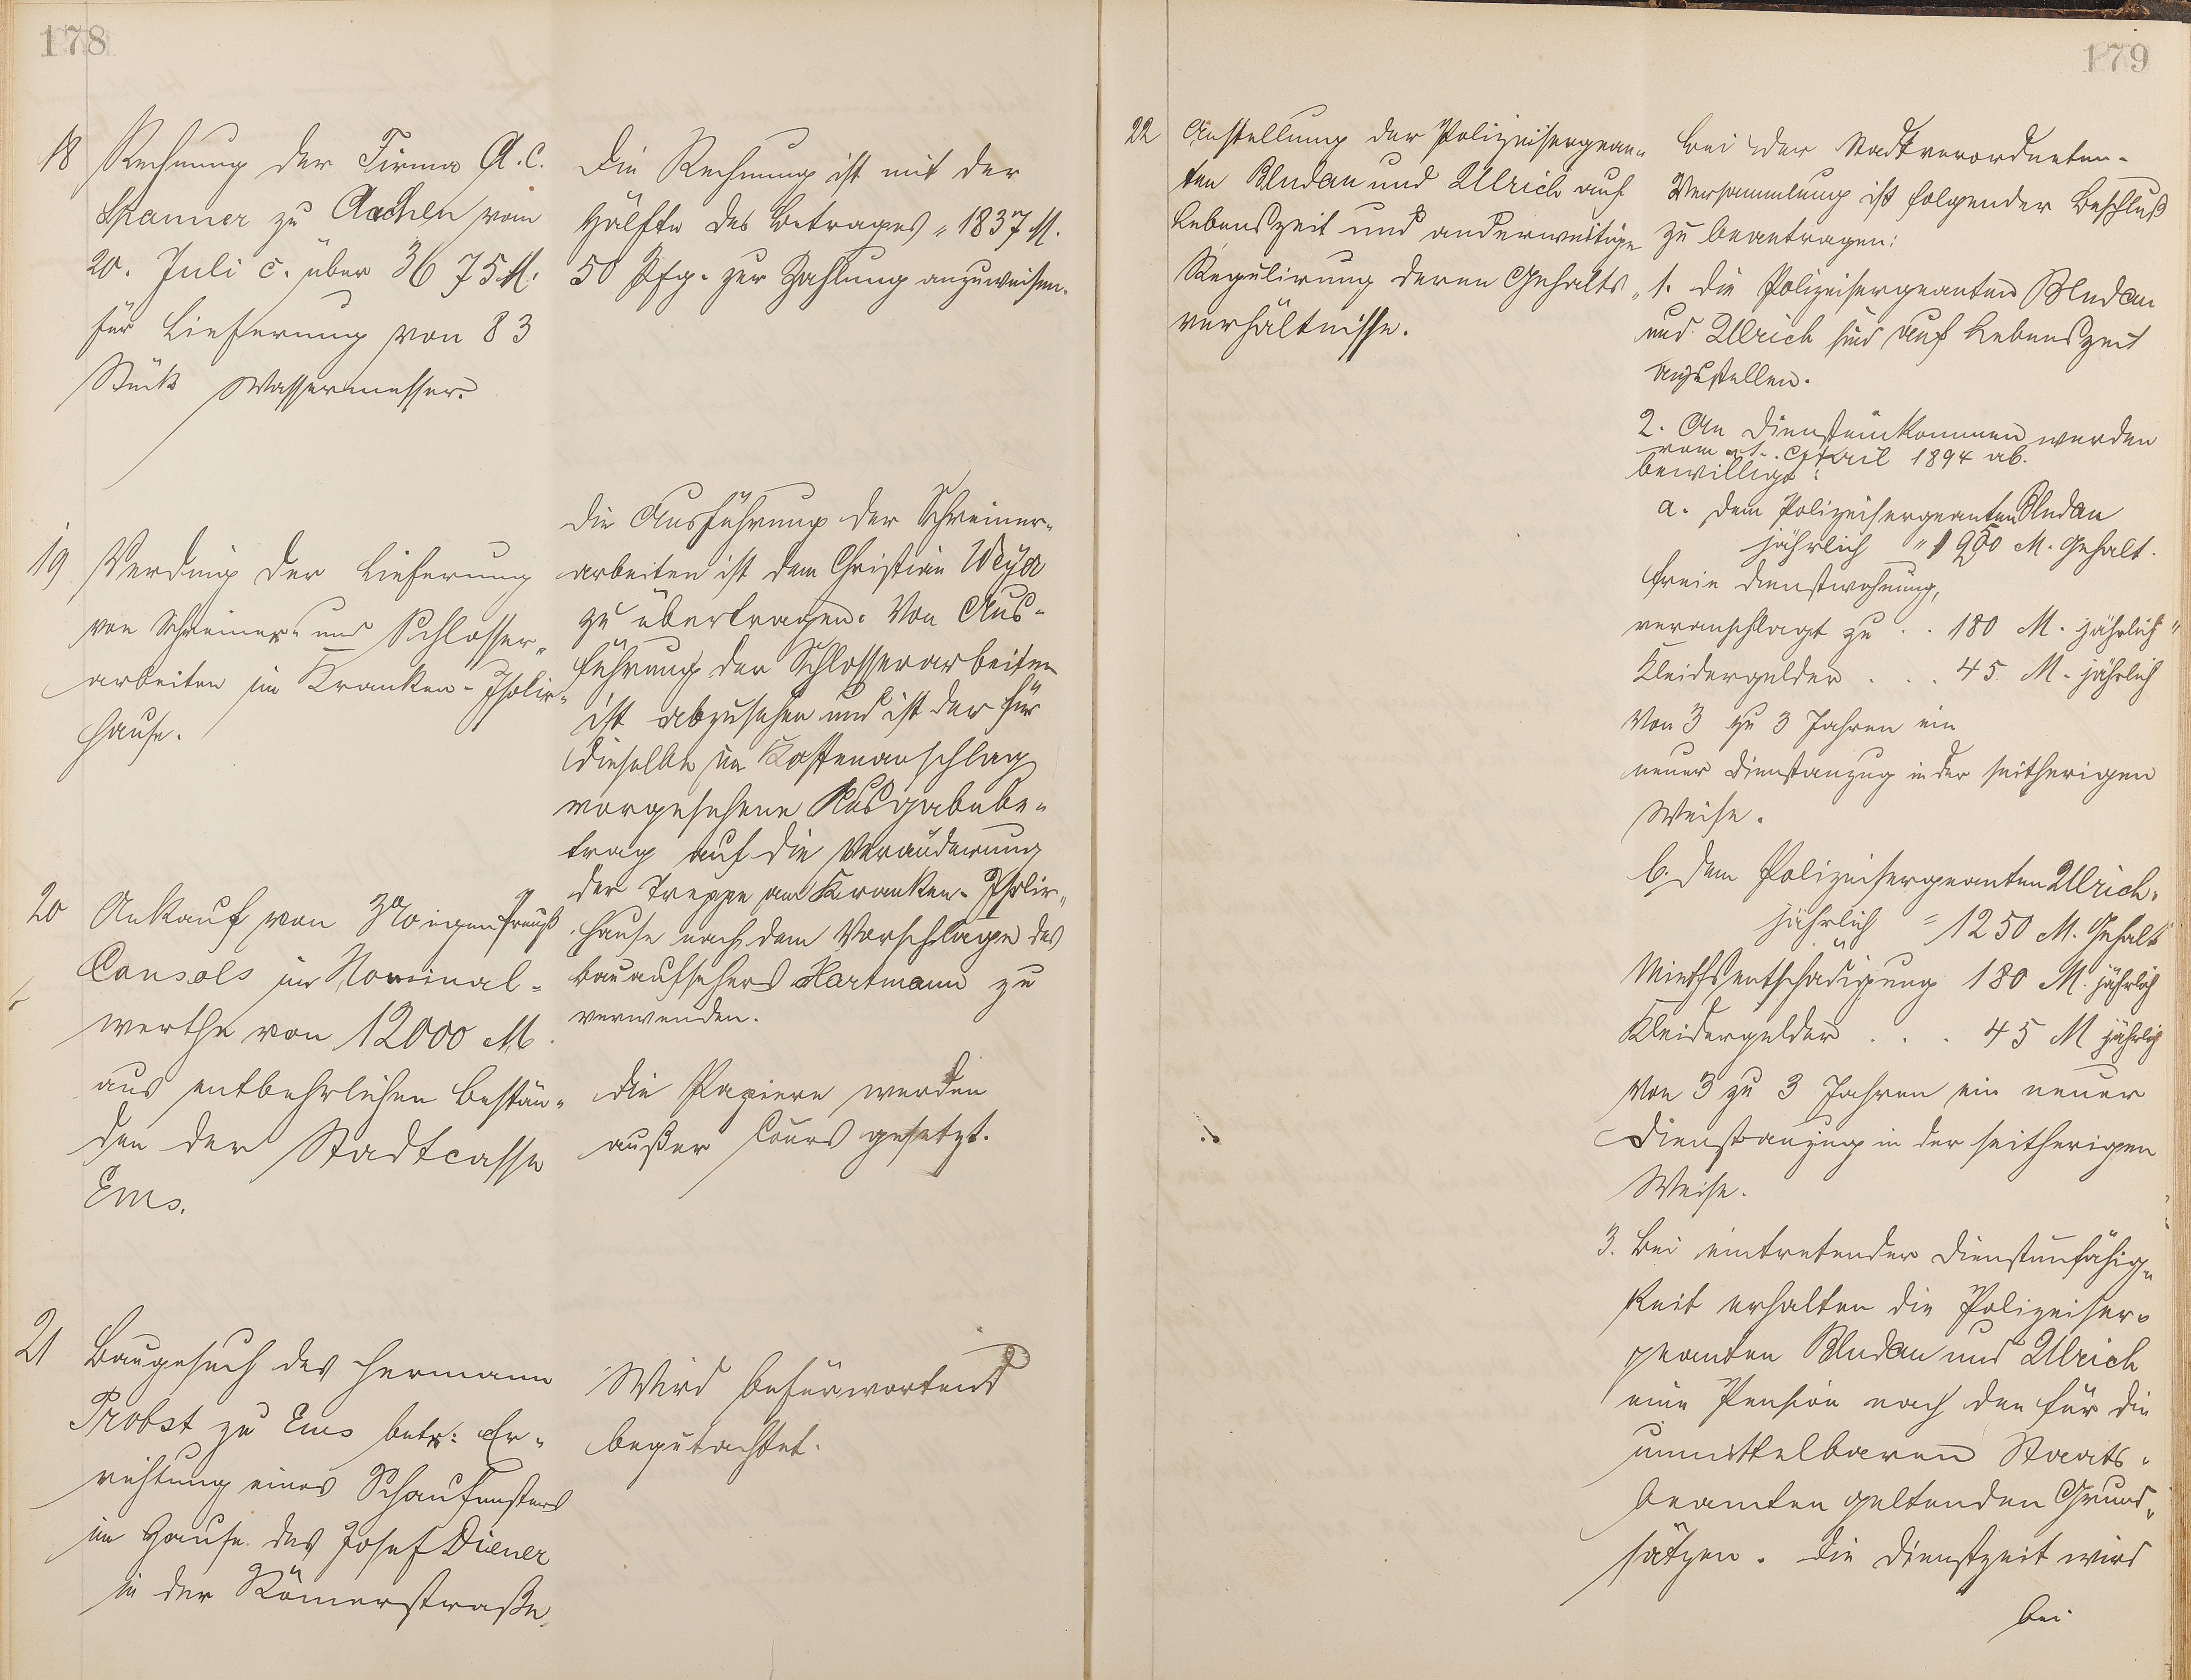 178
18 Rechnung der Firma A. C.
Spanner zu Aachen vom
20. Juli c. über 3675 M.
für Lieferung von 83
Stück Wassermesser.
Die Rechnung ist mit der
Hälfte des Betrages = 1837 M.
50 Pfg. zur Zahlung anzuweisen.
19 Verding der Lieferung
von Schreiner- und Schlosser-
arbeiten im Kranken-Isolir-
hause.
Die Ausführung der Schreiner-
arbeiten ist dem Christian Weyer
zu übertragen. Von Aus-
führung der Schlosserarbeiten
ist abzusehen und ist der für
dieselbe im Kostenanschlag
vorgesehene Ausgabebe-
trag auf die Veränderung
der Treppe am Kranken-Isolir-
hause nach dem Vorschlage des
Bauaufsehers Hartmann zu
verwenden.
20 Ankauf von 3%igen Preuß
Consols im Nominal-
werthe von 12000 M.
aus entbehrlichen Bestän-
den der Stadtcasse
Ems.
Die Papiere werden
außer Cours gesetzt.
21 Baugesuch des Hermann
Probst zu Ems betr: Er-
richtung eines Schaufensters
im Hause des Josef Diener
in der Römerstraße.
Wird befürwortend
begutachtet.
179
22 Anstellung der Polizeisergean-
ten Bludau und Ulrich auf
Lebenszeit und anderweitige
Regulirung deren Gehalts-
verhältnisse.
Bei der Stadtverordneten-
Versammlung ist folgender Beschluß
zu beantragen:
1. Die Polizeisergeanten Bludau
und Ulrich sind auf Lebenszeit
anzustellen.
2. An Diensteinkommen werden
vom 1. April 1894 ab.
bewilligt:
a. dem Polizeisergeanten Bludau
jährlich = M. Gehalt.
freie Dienstwohnung,
veranschlagt zu . . 180 M. jährlich
Kleidergelder . . . 45 M. jährlich
Von 3 zu 3 Jahren ein
neuer Dienstanzug in der seitherigen
Weise.
b. dem Polizeisergeanten Ulrich.
jährlich = 1250 M. Gehalt
Miethsentschädigung 180 M. jährlich
Kleidergelder . . . 45 M jährlich
Von 3 zu 3 Jahren ein neuer
Dienstanzug in der seitherigen
Weise.
3. Bei eintretender Dienstunfähig-
keit erhalten die Polizeiser-
geanten Bludau und Ulrich
eine Pension nach den für die
unmittelbaren Staats-
beamten geltenden Grund-
sätzen. Die Dienstzeit wird
bei